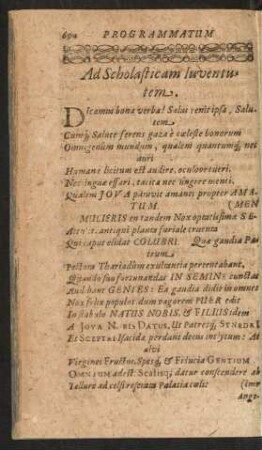 692 PROGRAMMATUM
Ad Scholasticam Iuventu-
tem.
Dicamus bona verba! Salvi reuīcipsa, Salu-
tem
Cumq; Salute ferens gaza è cœleste bonorum
Omnigenûm mundum, qualem quantumq; nec
auri
Humana licitum est audire, oculove tueri.
Nec linguâ effari, tacita nec fingere menti.
Qualem JOVA parens amanti propter AMA-
TUM. (MEN
MULIERIS en tandem Nox optatissima SE-
antiqui planta fariale cruenta
Qui caput elidet COLUBRI. Quæ gaudia Pa-
trum
Pectora Thariadûm exultantia pererrabant,
Quando suo fortunandas IN SEMINE cunctas
Audibant GENTES: Ea gaudia didit in omnes
Nox felix populos dum vagorem PUER edit
In stabulo NATUS NOBIS, & FILIUS idem
A JOVA NOBIS DATUS. Ut Patresq; SYNEDRI
Et SCEPTRI Isacida perdant decus inclytum: At
alvi
Virginei Fructus, Spesq; & Fiducia GENTIUM
OMNIUM adest: Scalisq; datur conscendere ab
Tellure ad celsi reserata Palatia cœli: (imo
ange-